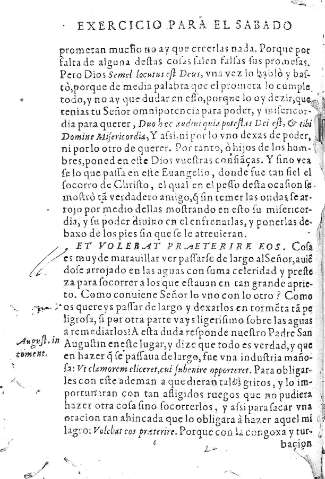 EXERCICIO PARA EL SABADO
prometan mucho no ay que creerlas nada. Porque por
falta de alguna destas cosas salen falsas sus promesas.
Pero Dios Semel locutus est Deus, vna vez lo habló y bas-
tó, porque de media palabra que el prometa lo cumple
todo, y no ay que dudar en esso, porque lo oy dezir, que
tenias tu Señor omnipotencia para poder, y misericor-
dia para querer, Duo hæc audiui quia potestas Dei est, & tibi
Domine Misericordia, Y assi, ni por lo vno dexas de poder,
ni por lo otro de querer. Por tanto, ò hijos de los hom-
bres, poned en este Dios vuestras confiāças. Y sino vea
se lo que passa en este Euangelio, donde fue tan fiel el
socorro de Christo, el qual en el passo desta ocasion se
mostrò tā verdadero amigo, q̄ sin temer las ondas se ar-
rojo por medio dellas mostrando en esto su misericor-
dia, y su poder diuino en el enfrenarlas, y ponerlas de-
baxo de los pies sin que se le atreuieran.
ET VOLEBAT PRAETERIRE EOS. Cosa
es muy de marauillar ver passarse de largo al Señor, auiē
dose arrojado en las aguas con suma celeridad, y preste
za para socorrer a los que estauan en tan grande aprie
to. Como conuiene Señor lo vno con lo otro? Como
os quereys passar de largo y dexarlos en tormēta tā pe
ligrosa, si por otra parte vays ligerissimo sobre las aguas
a remediarlos? A esta duda responde nuestro Padre San
Augustin en este lugar, y dize que todo es verdad, y que
en hazer q̄ se passaua de largo, fue vna industria maño-
sa: Vt clamorem eliceret, cui subenire opporteret. Para obligar-
les con este ademan a que dieran tales gritos, y lo im-
portunaran con tan asigidos ruegos que no pudiera
hazer otra cosa sino socorrerlos, y assi para sacar vna
oracion tan ahincada que lo obligara à hazer aquel mi
lagro: Volebat eos præterire. Porque con la congoxa y tur-
bacion
August. in
coment.